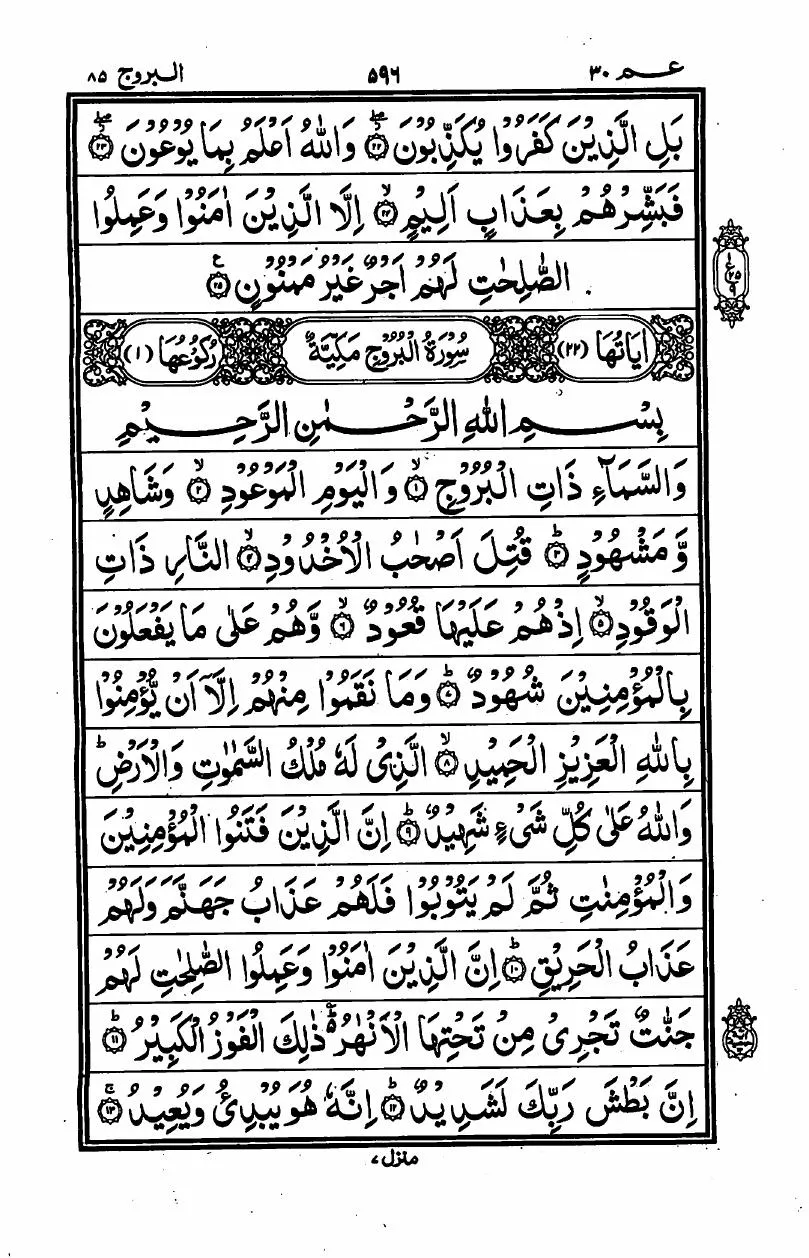 عم ٣٠
٥٩٦
البروج ٨٥
بَلِ الَّذِيْنَ كَفَرُوْا يُكَذِّبُوْنَ ﴿٢٢﴾ وَاللّٰهُ اَعْلَمُ بِمَا يُوْعُوْنَ ﴿٢٣﴾
فَبَشِّرْهُمْ بِعَذَابٍ اَلِيْمٍ ﴿٢٤﴾ اِلَّا الَّذِيْنَ اٰمَنُوْا وَعَمِلُوا
الصّٰلِحٰتِ لَهُمْ اَجْرٌ غَيْرُ مَمْنُوْنٍ ﴿٢٥﴾
ع ٢٥ ٩
اٰيَاتُهَا (٢٢) سُوْرَةُ الْبُرُوْجِ مَكِّيَّةٌ رُكُوْعُهَا (١)
بِسْمِ اللّٰهِ الرَّحْمٰنِ الرَّحِيْمِ
وَالسَّمَآءِ ذَاتِ الْبُرُوْجِ ﴿١﴾ وَالْيَوْمِ الْمَوْعُوْدِ ﴿٢﴾ وَشَاهِدٍ
وَّمَشْهُوْدٍ ﴿٣﴾ قُتِلَ اَصْحٰبُ الْاُخْدُوْدِ ﴿٤﴾ النَّارِ ذَاتِ
الْوَقُوْدِ ﴿٥﴾ اِذْ هُمْ عَلَيْهَا قُعُوْدٌ ﴿٦﴾ وَّهُمْ عَلٰى مَا يَفْعَلُوْنَ
بِالْمُؤْمِنِيْنَ شُهُوْدٌ ﴿٧﴾ وَمَا نَقَمُوْا مِنْهُمْ اِلَّآ اَنْ يُّؤْمِنُوْا
بِاللّٰهِ الْعَزِيْزِ الْحَمِيْدِ ﴿٨﴾ الَّذِيْ لَهٗ مُلْكُ السَّمٰوٰتِ وَالْاَرْضِ ؕ
وَاللّٰهُ عَلٰى كُلِّ شَيْءٍ شَهِيْدٌ ﴿٩﴾ اِنَّ الَّذِيْنَ فَتَنُوا الْمُؤْمِنِيْنَ
وَالْمُؤْمِنٰتِ ثُمَّ لَمْ يَتُوْبُوْا فَلَهُمْ عَذَابُ جَهَنَّمَ وَلَهُمْ
عَذَابُ الْحَرِيْقِ ﴿١٠﴾ اِنَّ الَّذِيْنَ اٰمَنُوْا وَعَمِلُوا الصّٰلِحٰتِ لَهُمْ
جَنّٰتٌ تَجْرِيْ مِنْ تَحْتِهَا الْاَنْهٰرُ ؕ ذٰلِكَ الْفَوْزُ الْكَبِيْرُ ﴿١١﴾
اِنَّ بَطْشَ رَبِّكَ لَشَدِيْدٌ ﴿١٢﴾ اِنَّهٗ هُوَ يُبْدِئُ وَيُعِيْدُ ﴿١٣﴾
منزل ٧